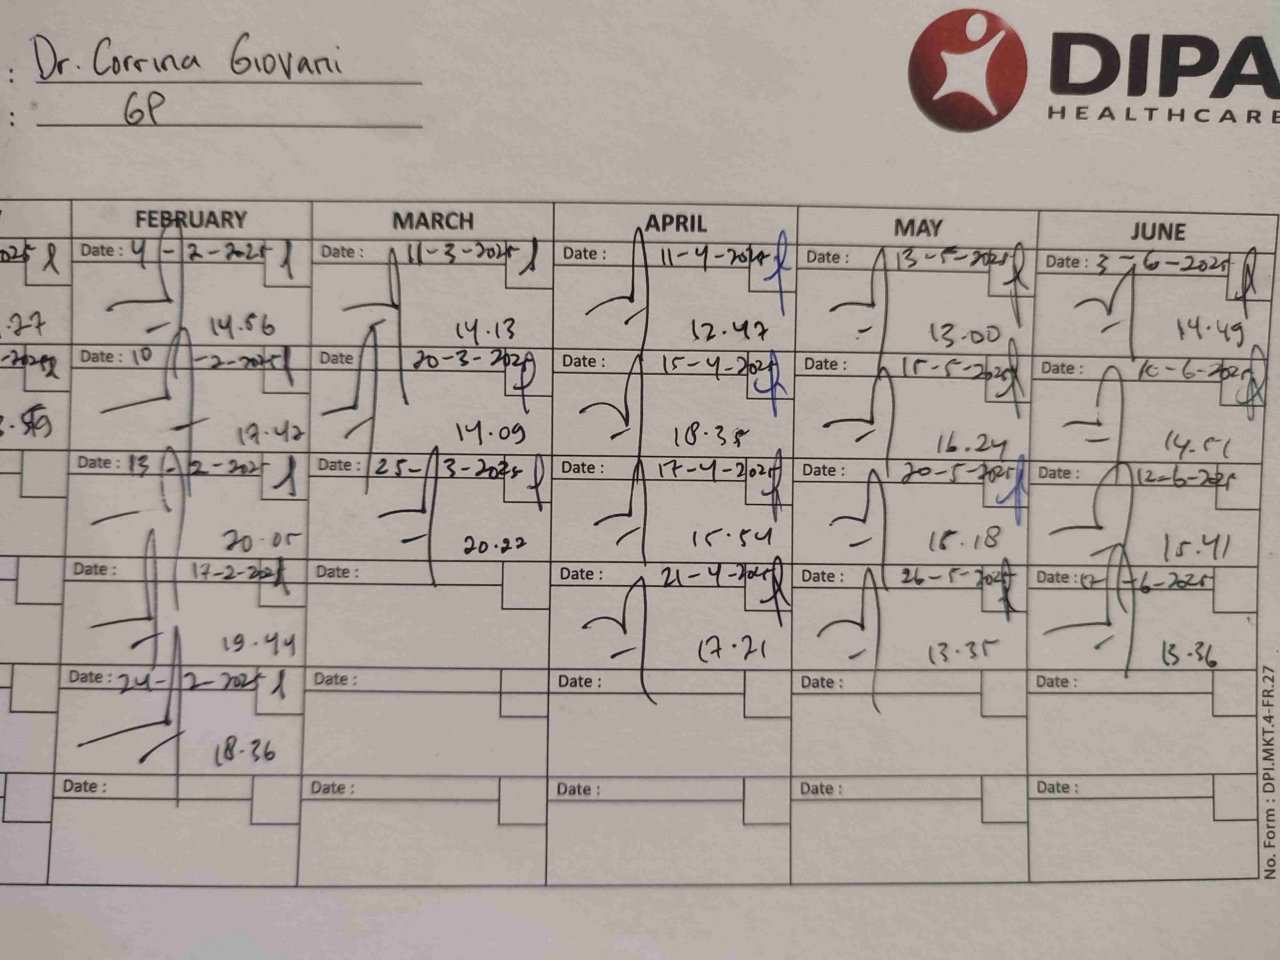 : Dr. Corrina Giovani
: GP
DIPA
HEALTHCARE
FEBRUARY MARCH APRIL MAY JUNE
Date : 4-2-2025 Date : 11-3-2025 Date : 11-4-2025 Date : 13-5-2025 Date : 3-6-2025
.27 14.56 14.13 12.47 13.00 14.49
Date : 10-2-2025 Date 20-3-2025 Date : 15-4-2025 Date : 15-5-2025 Date : 10-6-2025
17.42 14.09 18.35 16.24 14.51
Date : 13-2-2025 Date : 25-3-2025 Date : 17-4-2025 Date : 20-5-2025 Date : 12-6-2025
20.05 20.22 15.54 15.18 15.41
Date : 17-2-2025 Date : Date : 21-4-2025 Date : 26-5-2025 Date : 17-6-2025
19.44 17.21 13.35 13.36
Date : 24-2-2025 Date : Date : Date : Date :
18.36
Date : Date : Date : Date : Date :
No. Form : DPI.MKT.4-FR.27